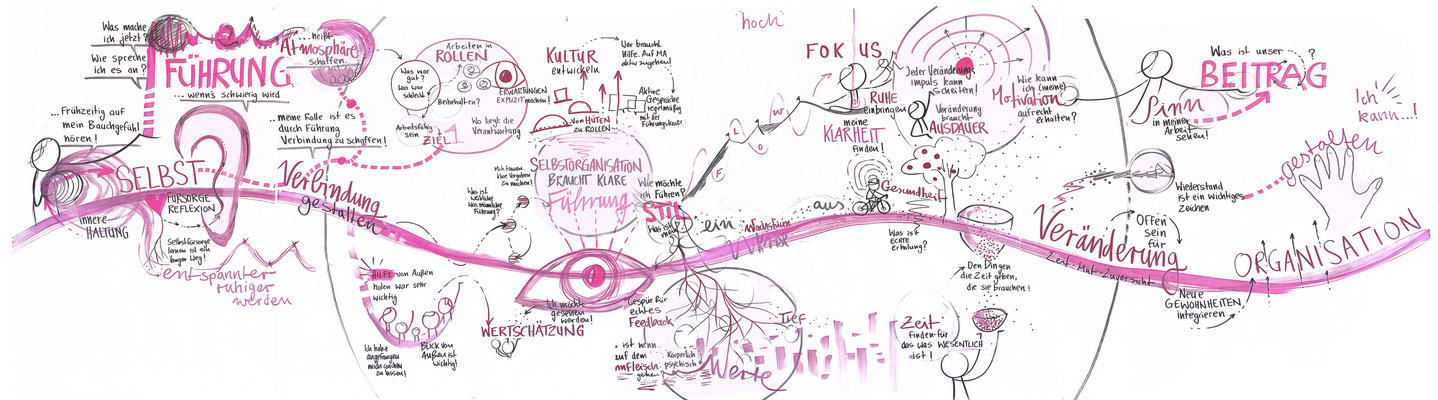 Was mache
ich jetzt?
Wie spreche
ich es an?
FÜHRUNG
...wenn's schwierig wird
...heißt
Atmosphäre
schaffen.
...Frühzeitig auf
mein Bauchgefühl
hören!
...meine Rolle ist es
durch Führung
Verbindung zu schaffen!
SELBST
FÜRSORGE
REFLEXION
innere
HALTUNG
Selbstfürsorge
lernen ist ein
langer Weg!
entspannter
ruhiger
werden
Verbindung
gestalten
Arbeiten in
ROLLEN
Was war
gut?
Was war
schlecht?
Beibehalten?
ERWARTUNGEN
EXPLIZIT machen!
Wo liegt die
Verantwortung
Arbeitsfähig
sein
ZIEL
KULTUR
entwickeln
Wer braucht
Hilfe. Auf MA
aktiv zugehen!
Von HÜTEN
zu ROLLEN
Aktive
Gespräche
regelmäßig
mit der
Führungskraft!
SELBSTORGANISATION
BRAUCHT KLARE
Führung
Mich trauen
klare Vorgaben
zu machen!
Was ist
weibliche/
Was männliche
Führung?
HILFE von Außen
holen war sehr
wichtig
Ich habe
angefangen
mich coachen
zu lassen!
Blick von
Außen ist
wichtig!
WERTSCHÄTZUNG
Ich möchte
gesehen
werden!
Gespür für
echtes
Feedback
Wie möchte
ich Führen?
STIL
Was ist
mein
hoch
FLOW
FOKUS
RUHE
einbringen
meine
KLARHEIT
finden!
ein
Wachstum
aus
Tief
Werte
...ist wenn
auf dem
Körperlich
psychisch
Jeder Veränderungs
impuls kann
scheitern!
Veränderung
braucht
AUSDAUER
Wie kann
ich (meine)
Motivation
aufrecht
erhalten?
Gesundheit
Was ist
ECHTE
Erholung?
Den Dingen
die Zeit geben,
die sie brauchen!
Zeit
finden für
das was WESENTLICH
ist!
Was ist unser
BEITRAG?
Sinn
in meiner
Arbeit
sehen!
Ich
kann...!
gestalten
Wiederstand
ist ein wichtiges
Zeichen
Veränderung
Zeit-Mut-Zuversicht
Offen
sein
für
Neue
GEWOHNHEITEN
integrieren
ORGANISATION